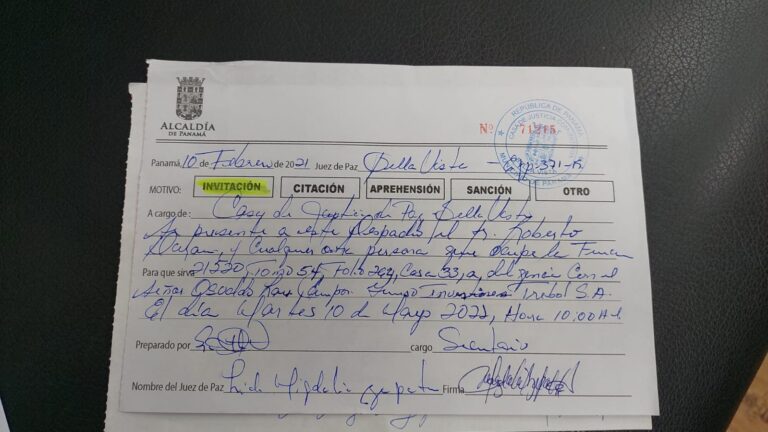 ALCALDÍA
DE PANAMÁ
Nº 71215
REPÚBLICA DE PANAMÁ
CASA DE JUSTICIA
Panamá, 10 de Febrero de 2021 Juez de Paz Bella Vista
MOTIVO: INVITACIÓN CITACIÓN APREHENSIÓN SANCIÓN OTRO
A cargo de: Casa de Justicia de Paz Bella Vista
Se presente a este Despacho el Sr. Roberto
y Cualquier otra persona que ocupe la Finca
Para que sirva 21520, Tomo 54, Folio Casa 33, a diligencia con el
Señor Osvaldo Grupo Inversiones Trebol S.A.
El día Martes 10 de Mayo 2022, Hora 10:00 A.M
Preparado por cargo Secretario
Nombre del Juez de Paz Licda Migdalia Firma